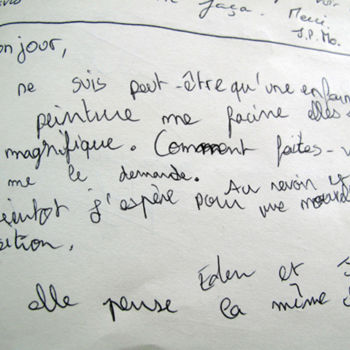 Jaça. Merci.
J.P. Mo.
onjour,
ne suis peut-être qu'une enfan
peinture me facine elles
magnifique. Comment faites-v
me le demande. Au revoir
bientot j'espère pour une nouvel
sition.
Eden et
elle pense la même